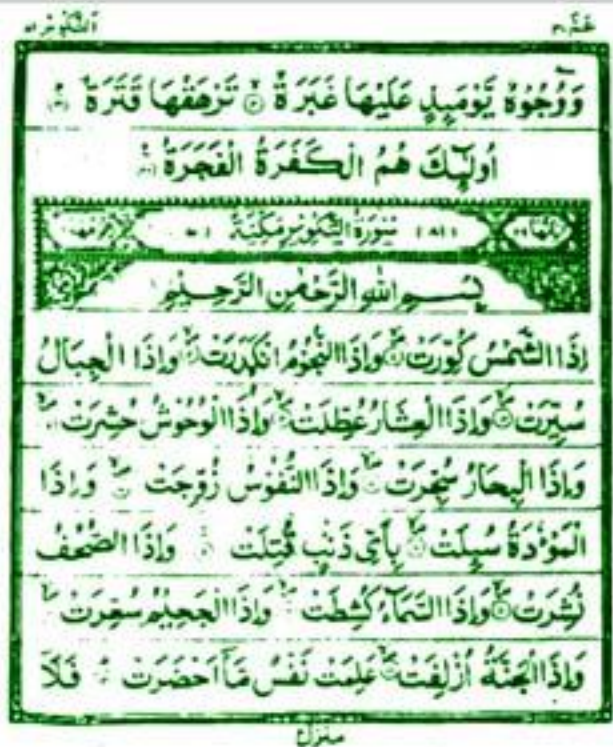 عَمَّ ٣٠
اَلتَّكْوِيْر ٨١
وَوُجُوْهٌ يَّوْمَىِٕذٍ عَلَيْهَا غَبَرَةٌ ۙ تَرْهَقُهَا قَتَرَةٌ ؕ
اُولٰٓىِٕكَ هُمُ الْكَفَرَةُ الْفَجَرَةُ
سُوْرَةُ التَّكْوِيْرِ مَكِّيَّةٌ (٨١)
بِسْــمِ اللّٰهِ الرَّحْمٰنِ الرَّحِيْمِ
اِذَا الشَّمْسُ كُوِّرَتْ ۙ وَاِذَا النُّجُوْمُ انْكَدَرَتْ ۙ وَاِذَا الْجِبَالُ
سُيِّرَتْ ۙ وَاِذَا الْعِشَارُ عُطِّلَتْ ۙ وَاِذَا الْوُحُوْشُ حُشِرَتْ ۙ
وَاِذَا الْبِحَارُ سُجِّرَتْ ۙ وَاِذَا النُّفُوْسُ زُوِّجَتْ ۙ وَاِذَا
الْمَوْءٗدَةُ سُىِٕلَتْ ۙ بِاَىِّ ذَنْۢبٍ قُتِلَتْ ۚ وَاِذَا الصُّحُفُ
نُشِرَتْ ۙ وَاِذَا السَّمَآءُ كُشِطَتْ ۙ وَاِذَا الْجَحِيْمُ سُعِّرَتْ ۙ
وَاِذَا الْجَنَّةُ اُزْلِفَتْ ۙ عَلِمَتْ نَفْسٌ مَّاۤ اَحْضَرَتْ ؕ فَلَاۤ
منزل